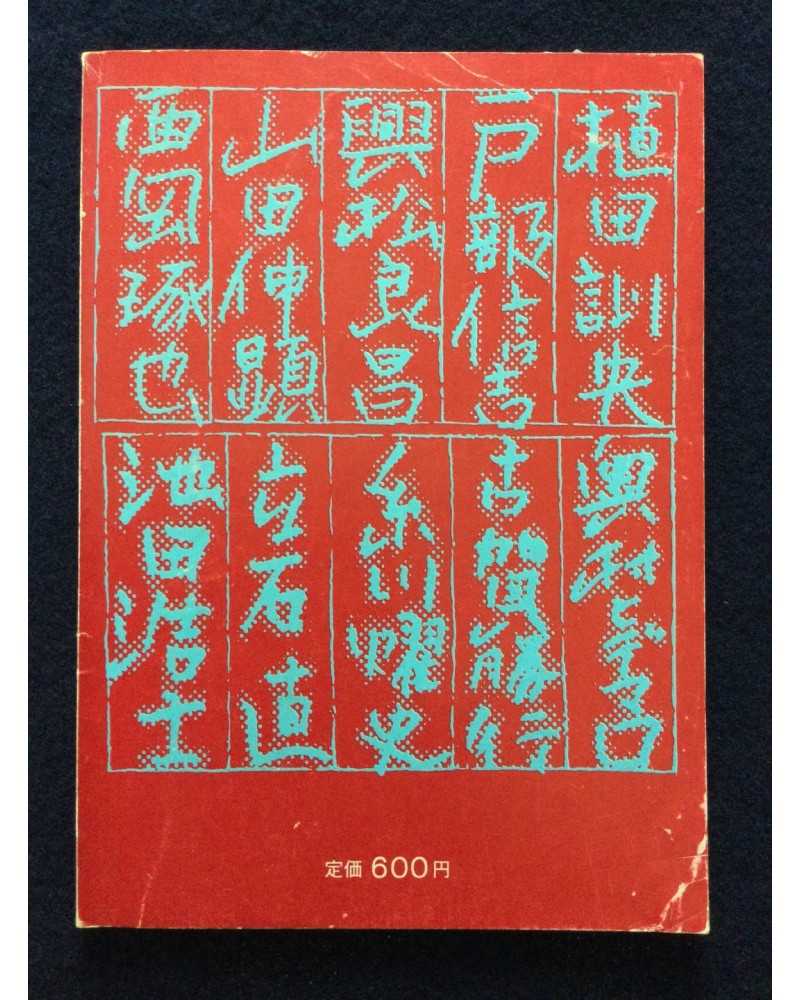 植田訓央
戸部信吉
興松良昌
山田伸顕
西岡琢也
奥村ヒデマロ
古賀勝行
糸川燿史
立石直
池田浩士
定価600円